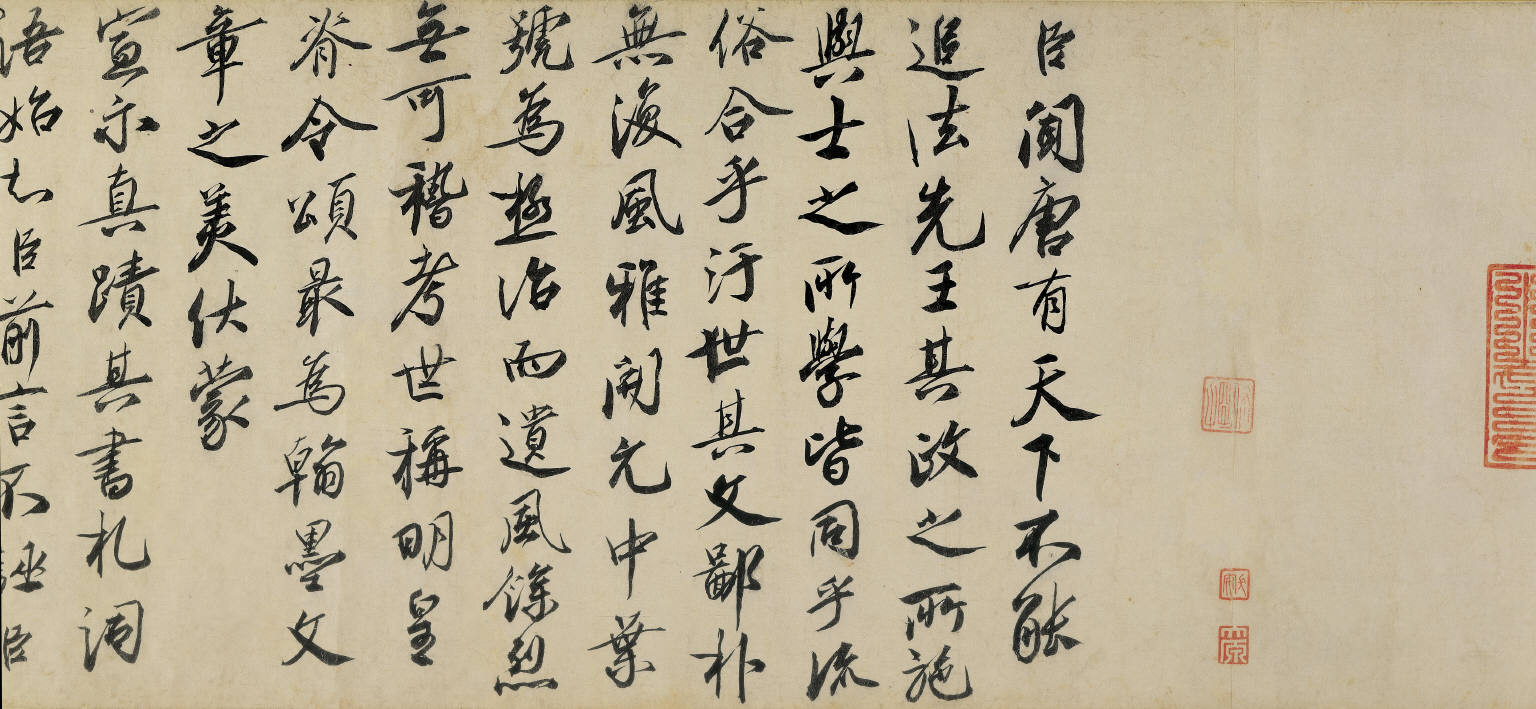 臣聞唐有天下不能
追法先王其政之所施
與士之所學皆同乎流
俗合乎汙世其文鄙朴
無復風雅開元中葉
號為極治而遺風餘烈
無可稽考世稱明皇
脊令頌最為翰墨文
章之美伏蒙
宣示真蹟其書札詞
語始知臣前言不誣臣